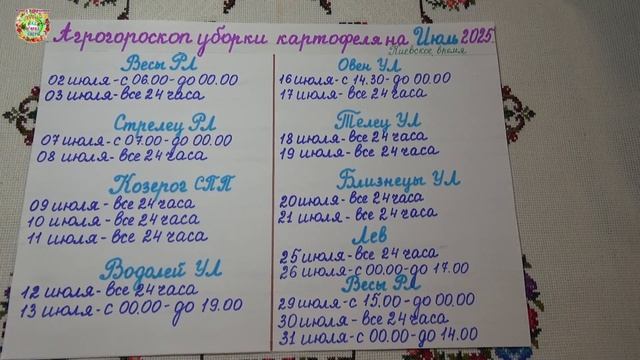 Агрогороскоп уборки картофеля на Июль 2025
Киевское время
Весы РЛ
02 июля-с 06.00-до 00.00
03 июля-все 24 часа
Стрелец РЛ
07 июля-с 07.00-до 00.00
08 июля-все 24 часа
Козерог СПП
09 июля-все 24 часа
10 июля-все 24 часа
11 июля-все 24 часа
Водолей УЛ
12 июля-все 24 часа
13 июля-с 00.00-до 19.00
Овен УЛ
16 июля-с 14.30-до 00.00
17 июля-все 24 часа
Телец УЛ
18 июля-все 24 часа
19 июля-все 24 часа
Близнецы УЛ
20 июля-все 24 часа
21 июля-все 24 часа
Лев
25 июля-все 24 часа
26 июля-с 00.00-до 17.00
Весы РЛ
29 июля-с 15.00-до 00.00
30 июля-все 24 часа
31 июля-с 00.00-до 14.00